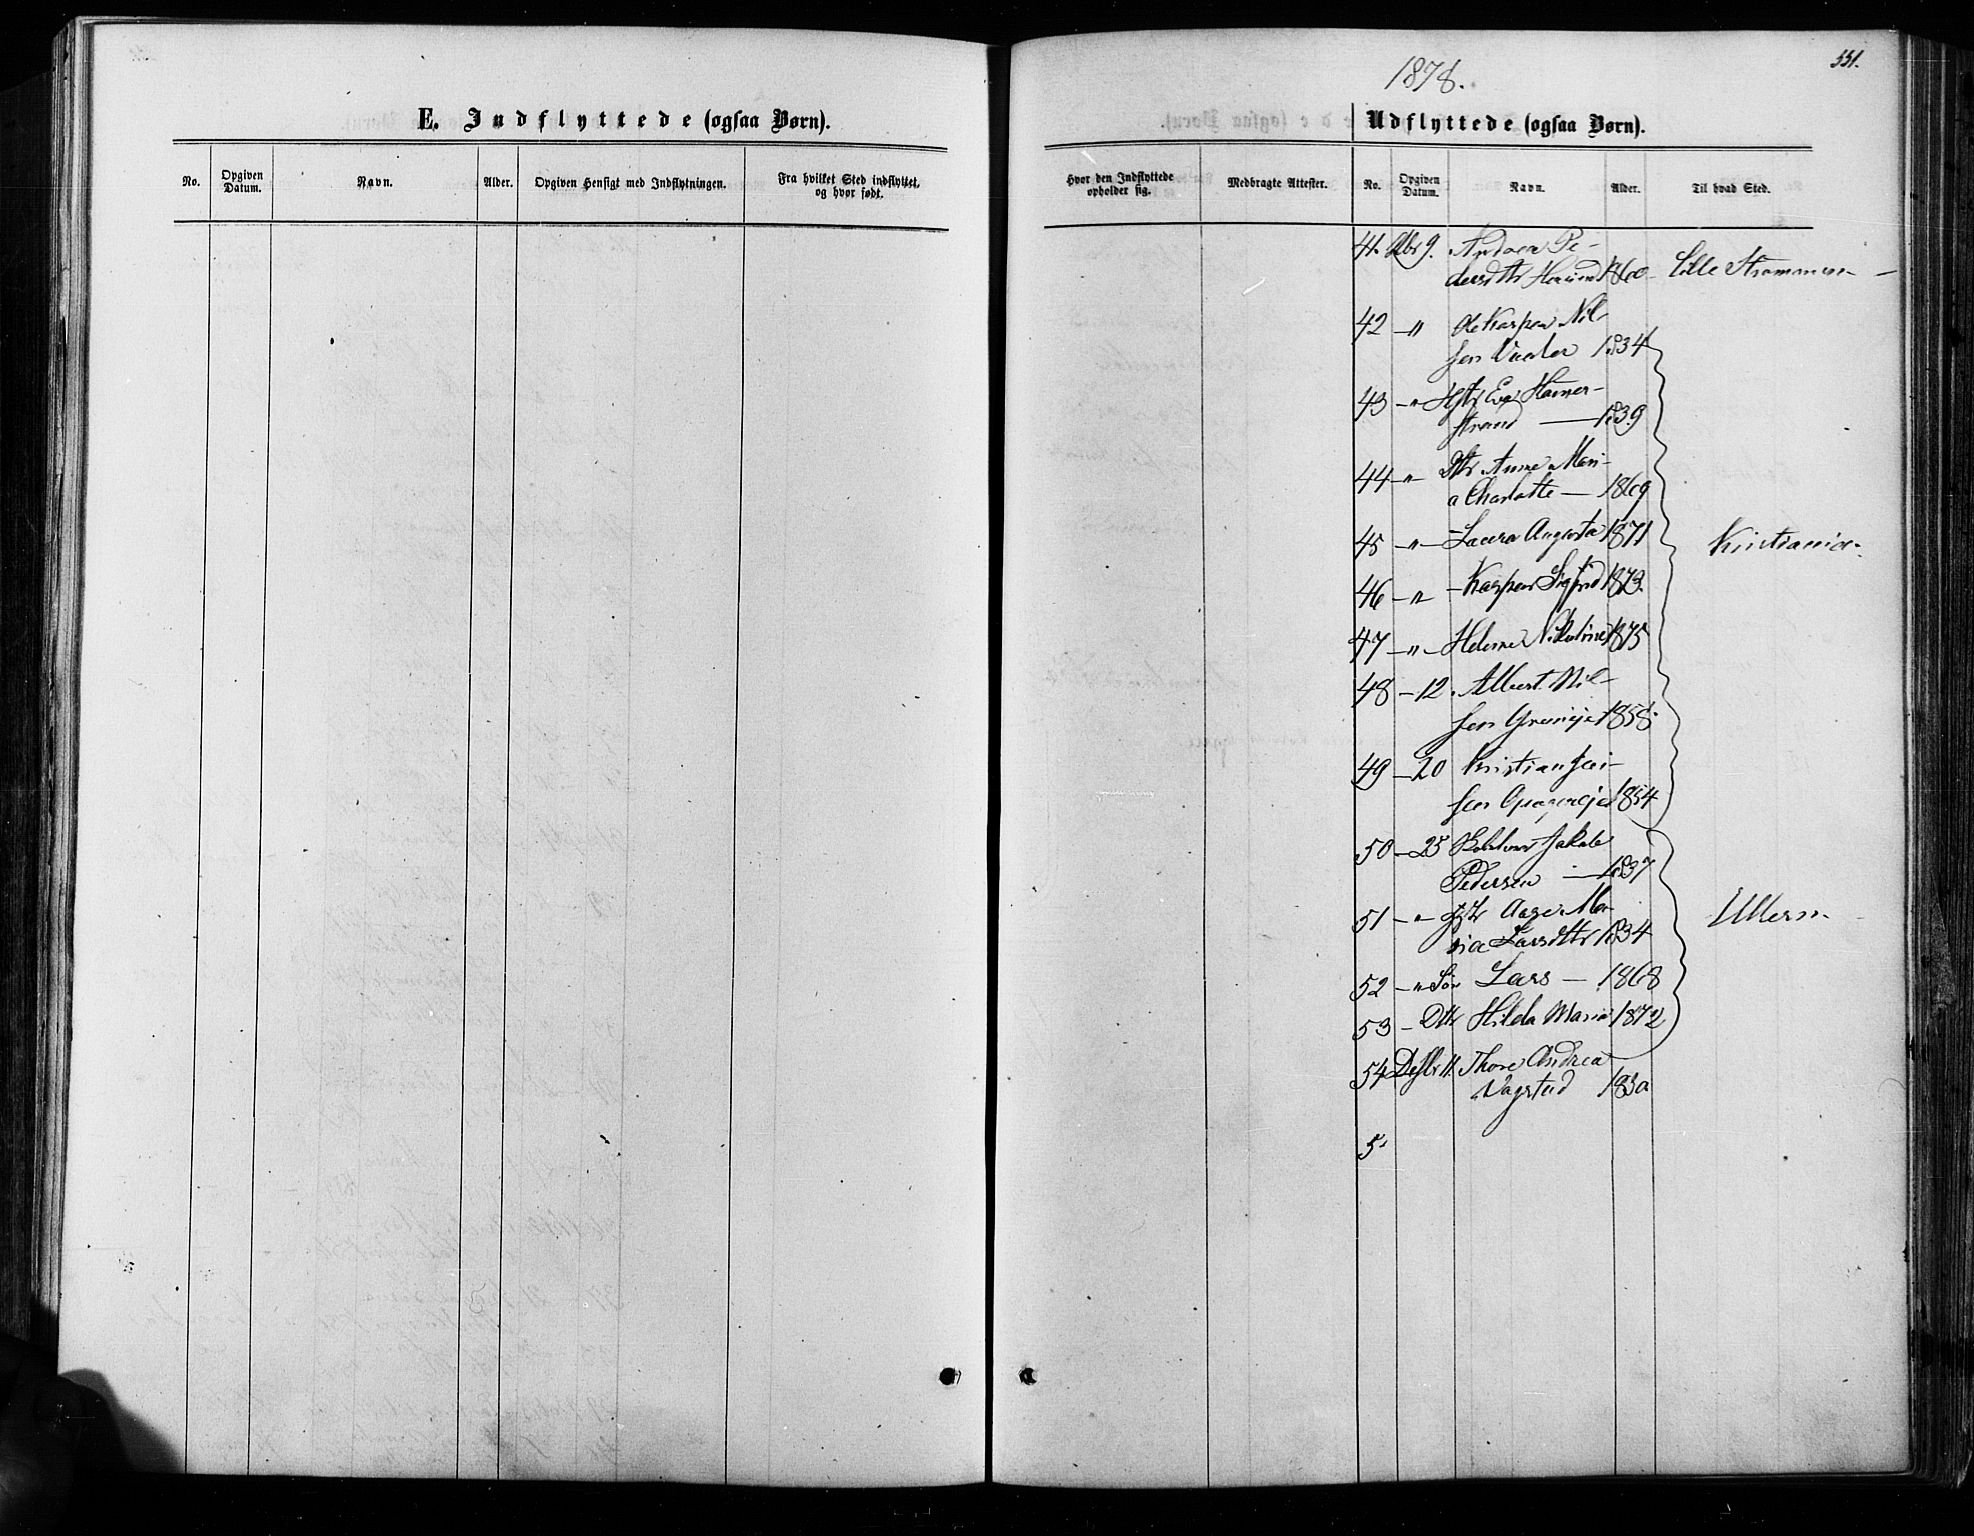 551.
1878.
E. Indflyttede (ogsaa Børn).
No. Opgiven Datum. Navn. Alder. Opgiven Hensigt med Indflytningen. Fra hvilket Sted indflyttet, og hvor født.
Udflyttede (ogsaa Børn).
Hvor den Indflyttede opholder sig. Medbragte Attester. No. Opgiven Datum. Navn. Alder. Til hvad Sted.
41. 9. Andrea Pe-
dersdtr 1860 Lille Strømmen
42 -"- Ole Kaspar Nil-
sen 1834
43 -"- Hstr Eva Hamer-
strand 1839
44 -"- Dtr Anne Mari-
a Charlotte 1869
45 -"- Laura Augusta 1871 Kristiania
46 -"- Kaspar Sigfrid 1873.
47 -"- Helene Nikoline 1875
48 -12. Albert Nil-
sen 1858.
49 -20 Kristian
sen 1854
50 -25 Jakob
Pedersen 1837
51 -"- Hstr Aase Ma-
ria Larsdtr 1834 Ullern
52 -"- Søn Lars 1868
53 - Dttr Hilda Maria 1872
54 Desbr 11. Thore Andrea
Vagstad 1850
5